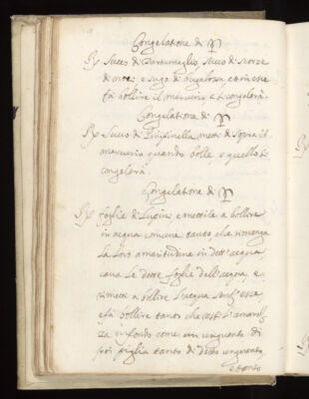 Congelatore di ☿
℞ Succo di Tartumaglio, Succo di Scorze
di noce, e sugo di buglossa e con esse
fa bollire il mercurio e si congelerà.
Congelatore di ☿
℞ Succo di Pimpinella metti di sopra il
mercurio quando bolle, e quello si
congelerà.
Congelatore di ☿
℞ foglie di Lupini, e mettile a bollire
in acqua comune tanto che rimanga
la loro amaritudine in dett'acqua
cava le dette foglie dell'acqua, e
rimetti a bollire l'acqua senz'esse,
e fa bollire tanto che resti
in fondo come un unguento di
poi piglia tanto di detto unguento
e tanto